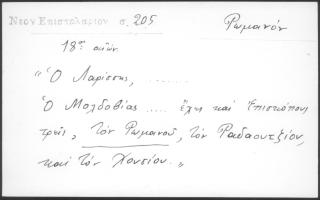 Νεον Επιστολαριον σ. 205
Ρωμανόν
18ος αιών
“Ὁ Λαρίσσης, .........
Ὁ Μολδοβίας ..... ἔχει καὶ Ἐπισκόπους
τρεῖς, τὸν Ρωμανοῦ, τὸν Ραδαουτζίου,
καὶ τὸν Χουσίου.„